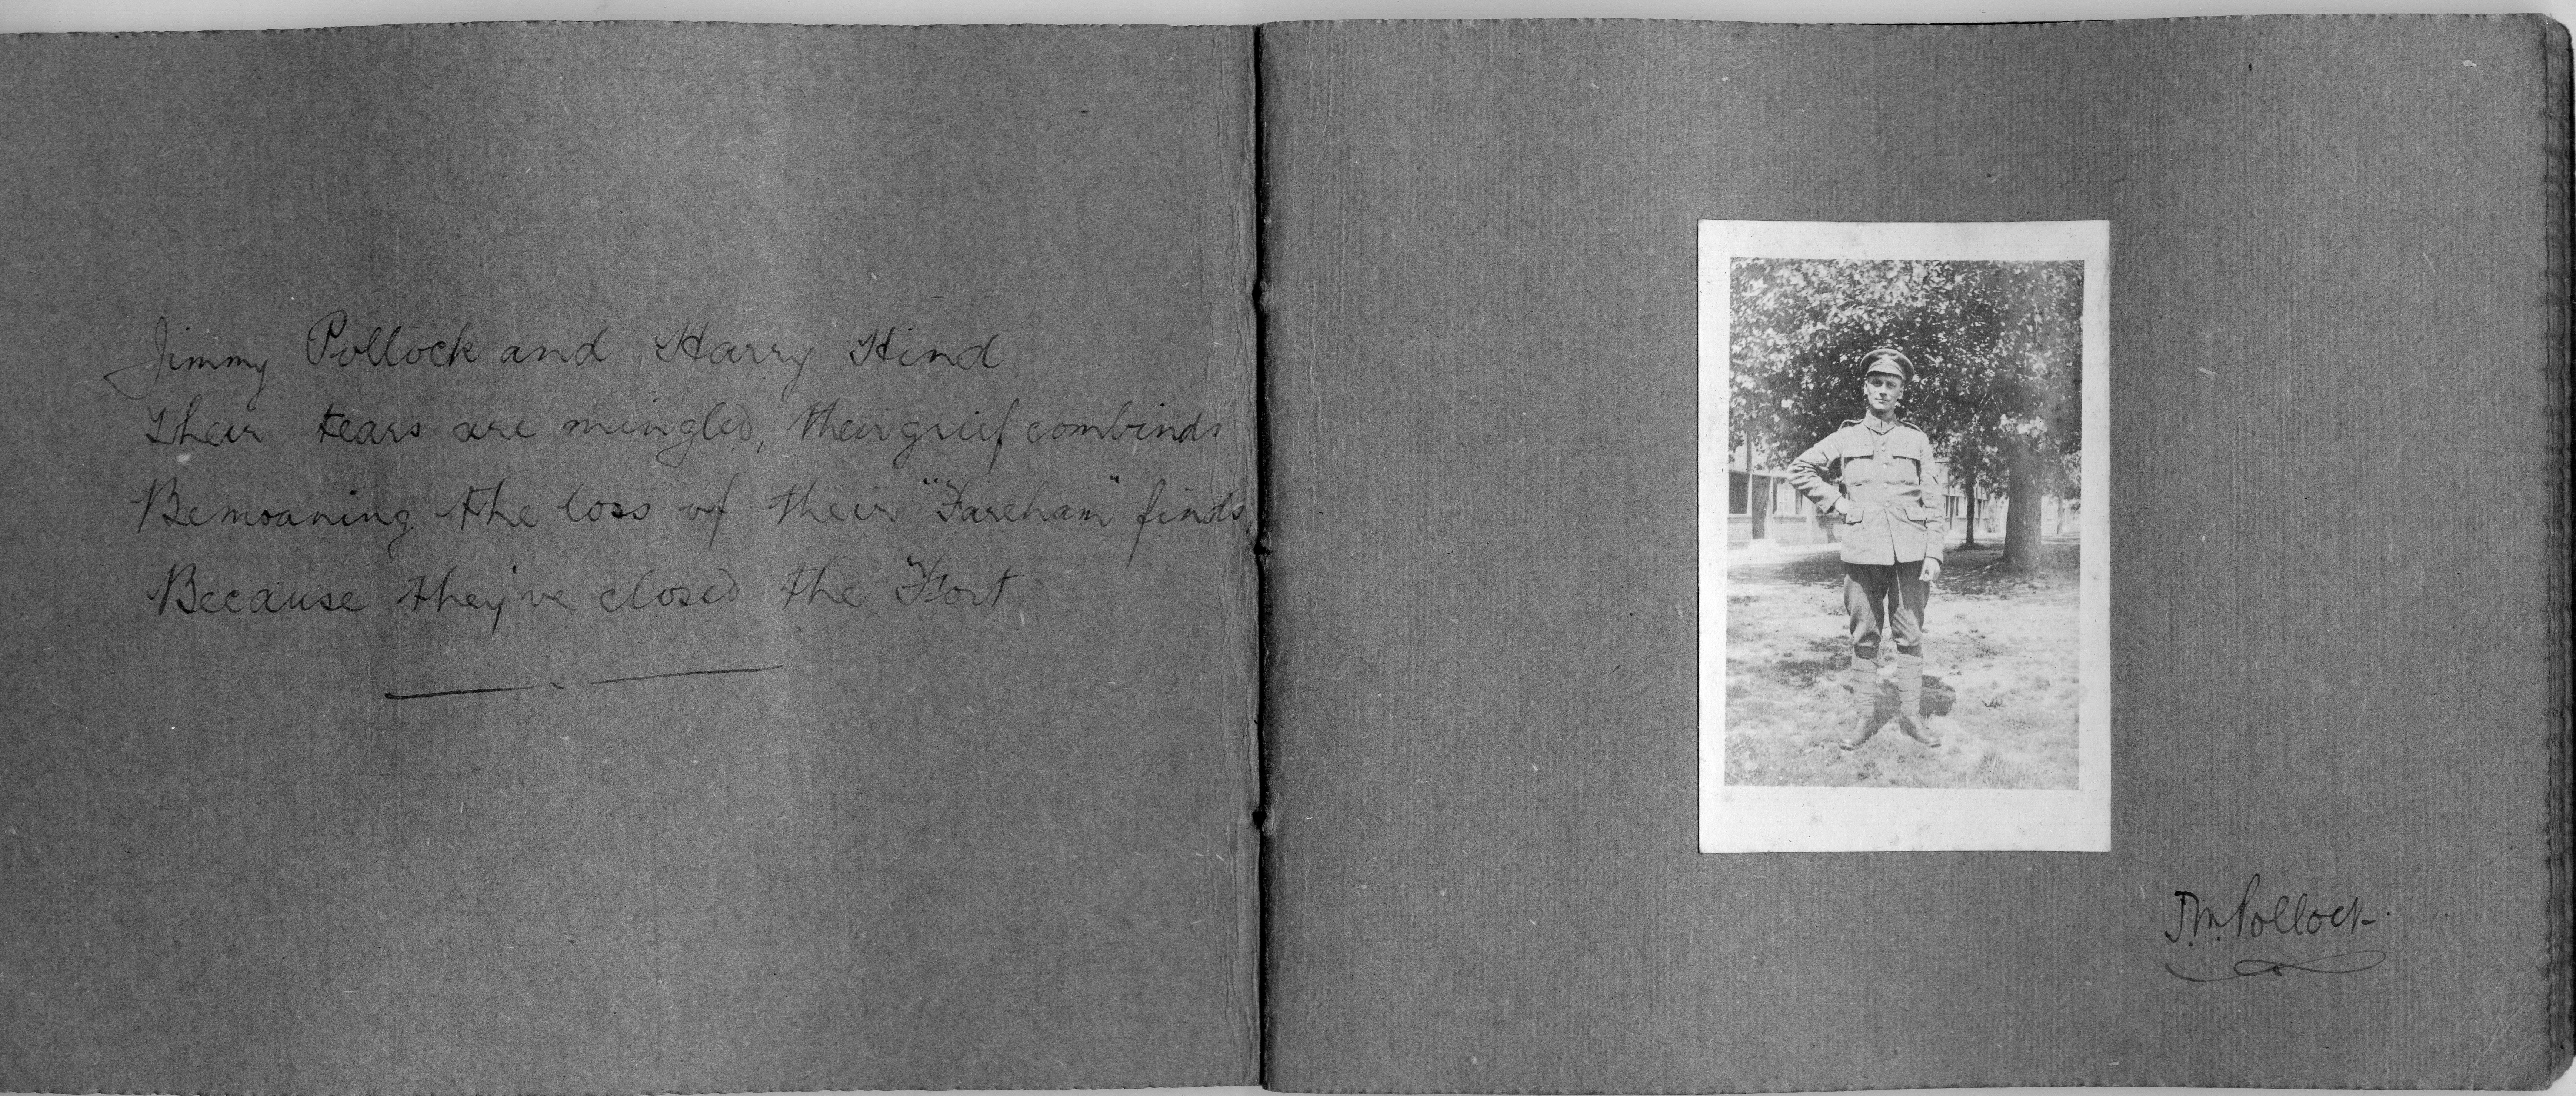 Jimmy Pollock and Harry Hind
Their tears are mingled, their grief combinds
Bemoaning the loss of their "Fareham" finds,
Because they've closed the Fort
J.M. Pollock.